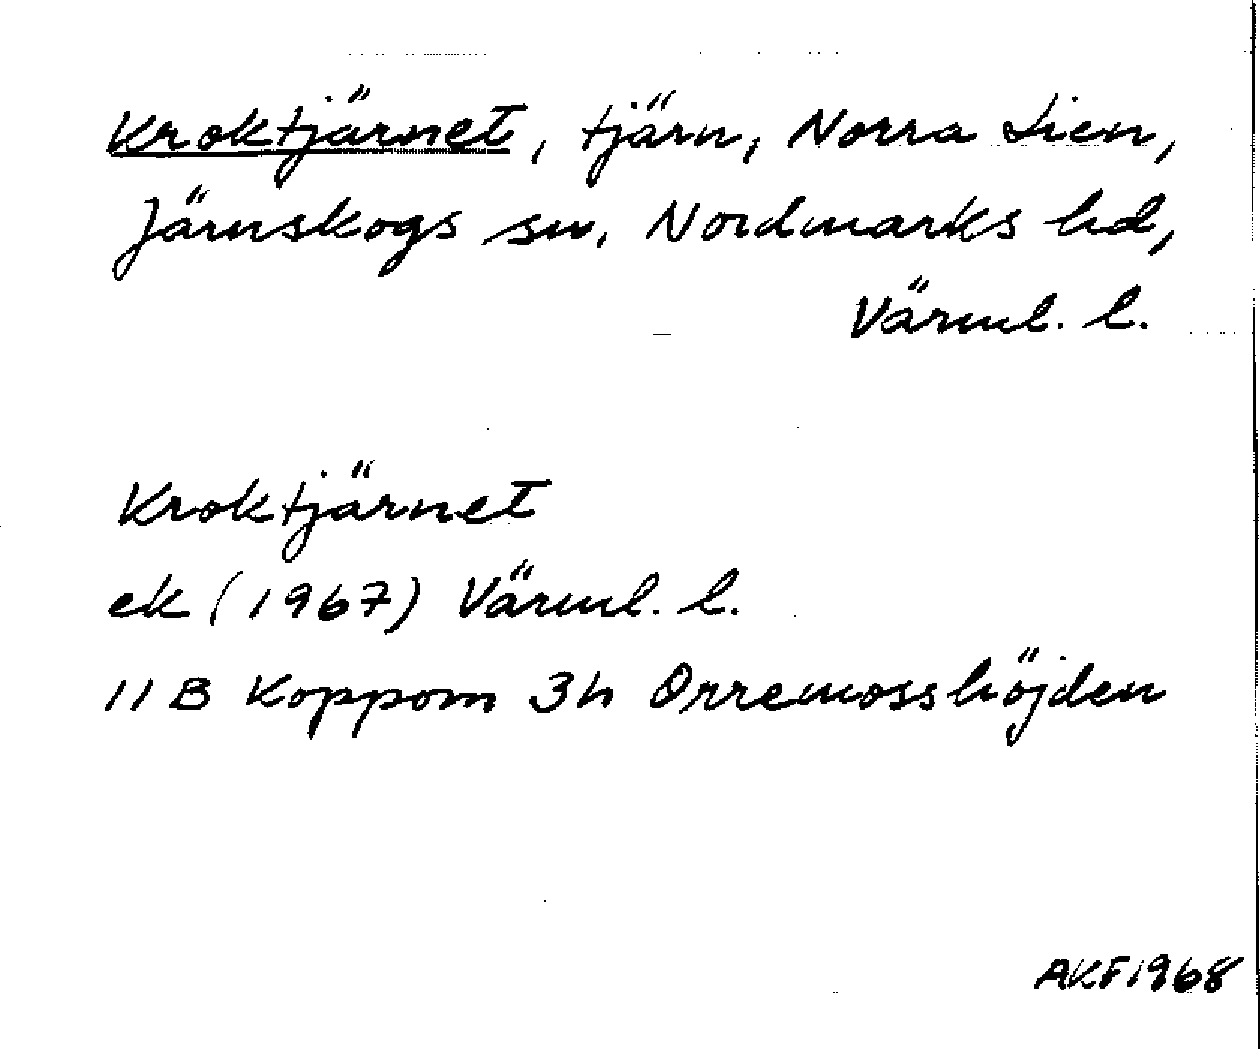 Kroktjärnet, tjärn, Norra Lien,
Järnskogs sn, Nordmarks hd,
Värml. l.
Kroktjärnet
ek (1967) Värml. l.
11 B Koppom 3h Orremosshöjden
AKF1968